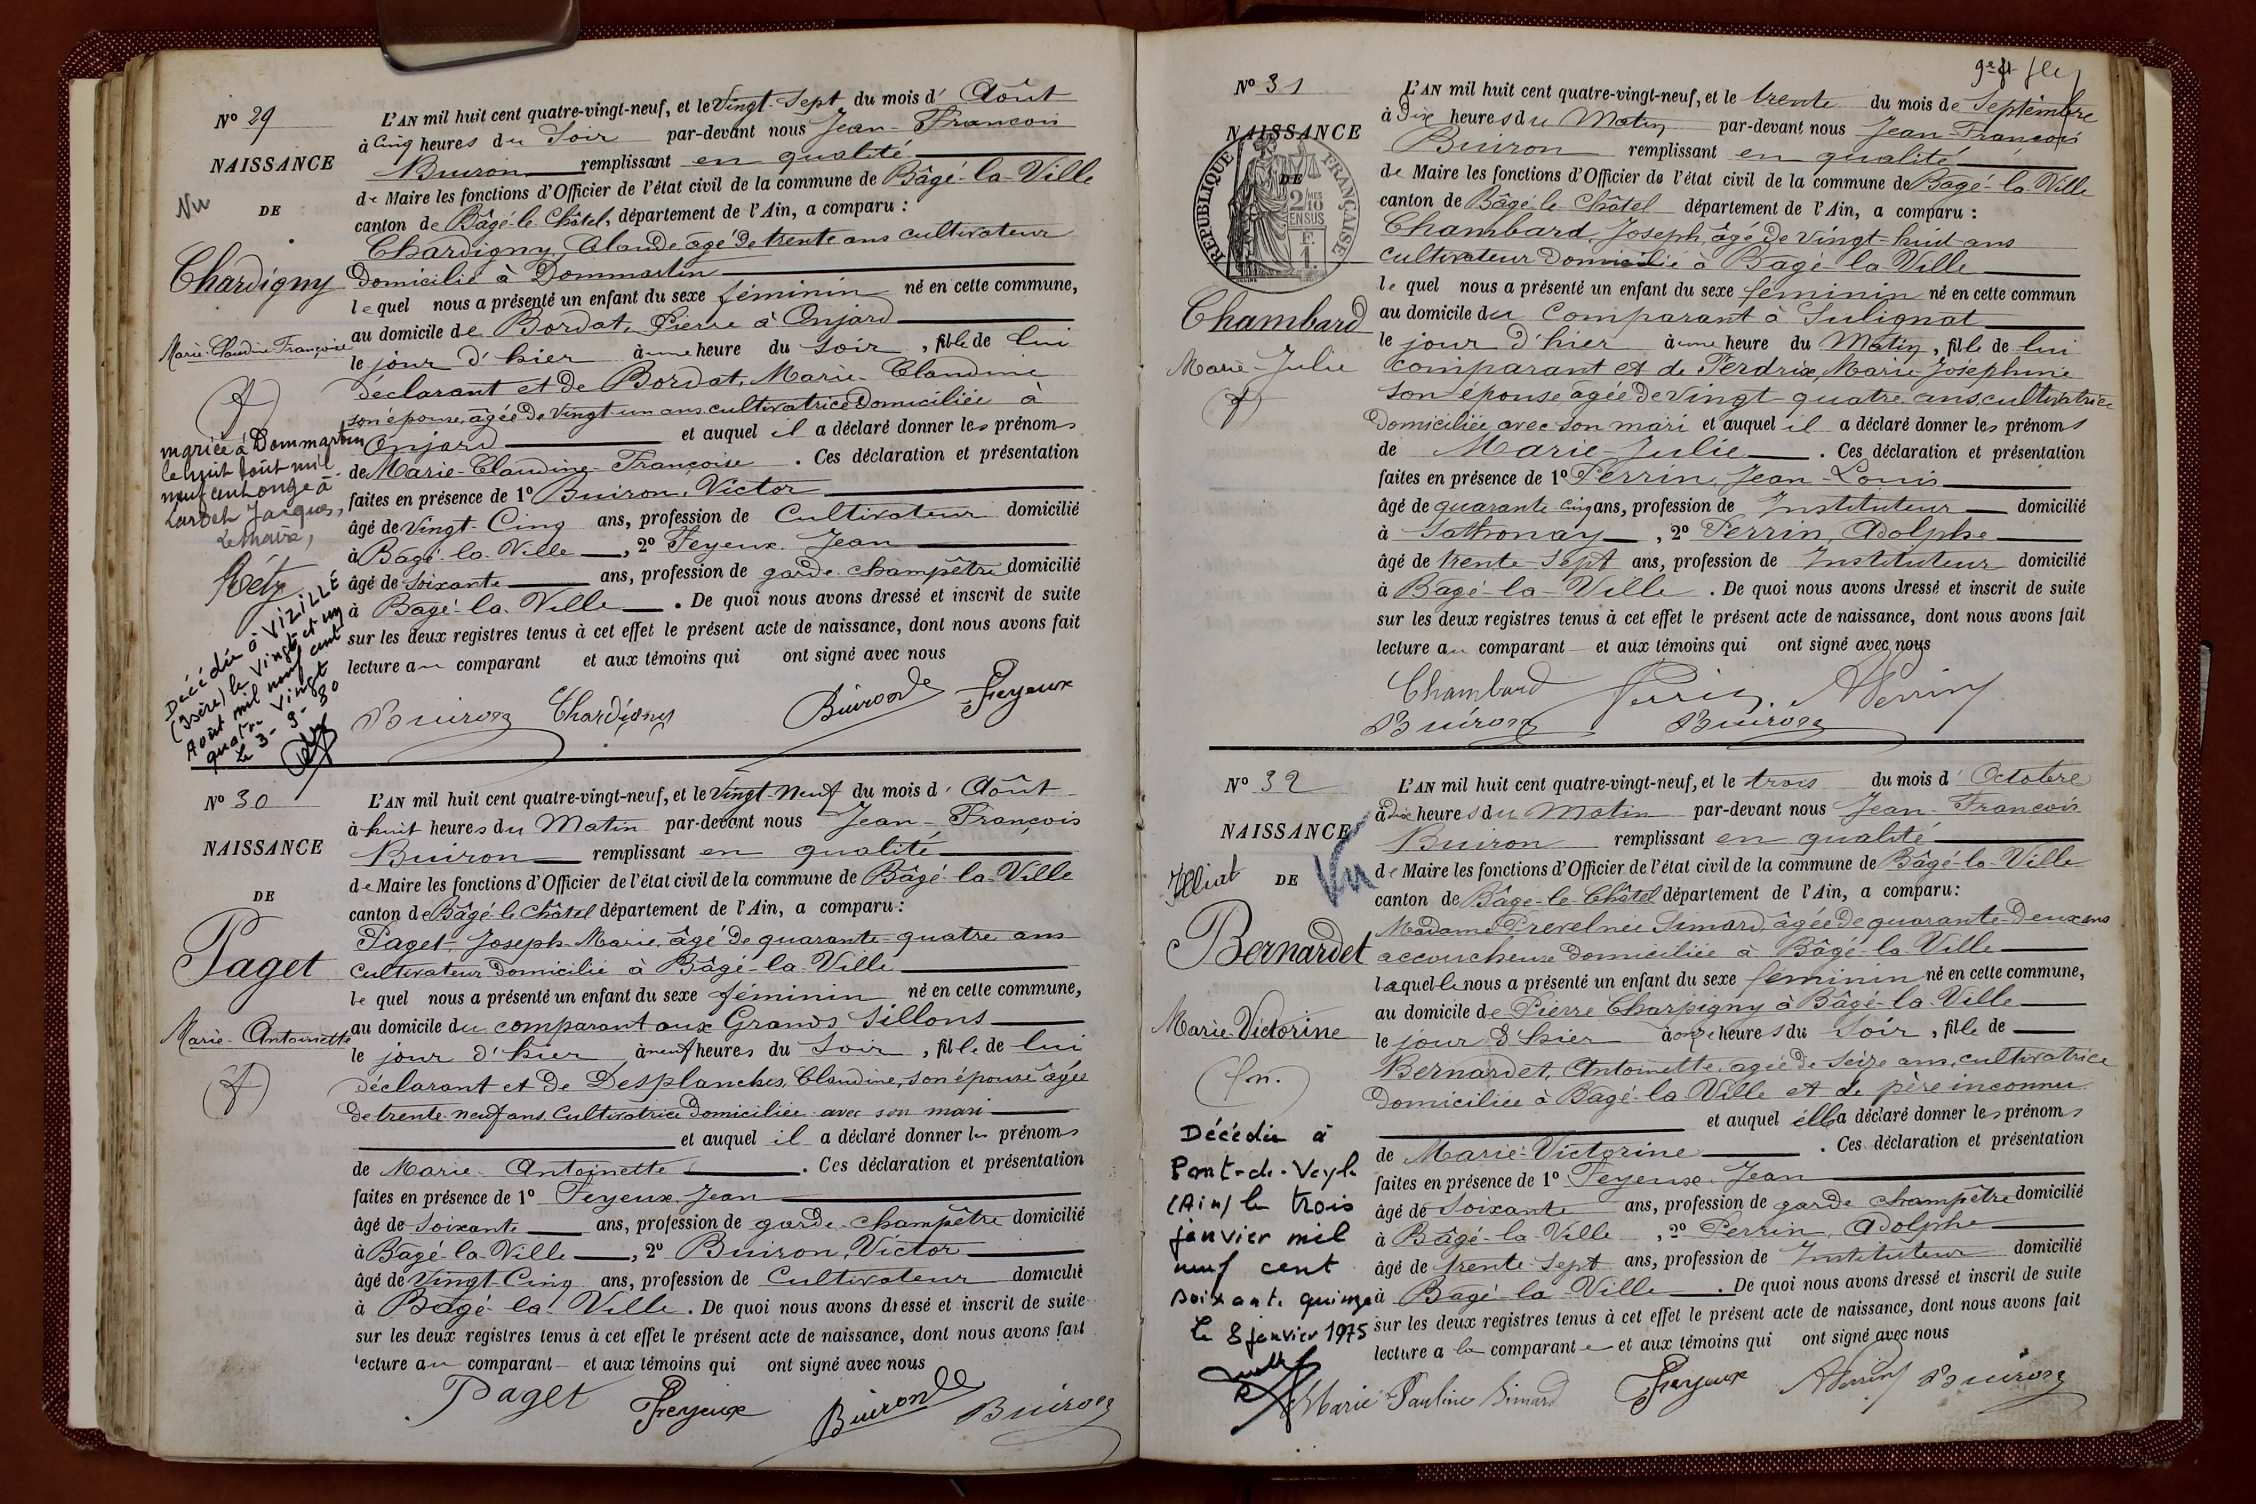 N° 29
NAISSANCE
Vu
DE
Chardigny
Marie-Claudine Françoise
mariée à Dommartin
le huit août mil
neuf cent onze à
Jacques,
Le Maire,
Décédée à VIZILLE
(Isère) le Vingt et un
Août mil neuf cent
quatre Vingt
Le 3-9-80
L'AN mil huit cent quatre-vingt-neuf, et le Vingt-Sept du mois d' Août
à Cinq heures du Soir par-devant nous Jean-François
Buiron remplissant en qualité
de Maire les fonctions d'Officier de l'état civil de la commune de Bâgé-la-Ville
canton de Bâgé-le-Châtel, département de l'Ain, a comparu :
Chardigny, Claude âgé de trente ans cultivateur
Domicilié à Dommartin
lequel nous a présenté un enfant du sexe féminin né en cette commune,
au domicile de Bordat, Pierre à Onjard
le jour d'hier à une heure du Soir, fille de lui
déclarant et de Bordat, Marie-Claudine
son épouse, âgée de Vingt un ans cultivatrice Domiciliée à
Onjard et auquel il a déclaré donner les prénoms
de Marie-Claudine-Françoise. Ces déclaration et présentation
faites en présence de 1° Buiron, Victor
âgé de Vingt-Cinq ans, profession de Cultivateur domicilié
à Bâgé-la-Ville, 2° Feyeux Jean
âgé de Soixante ans, profession de garde-champêtre domicilié
à Bâgé-la-Ville. De quoi nous avons dressé et inscrit de suite
sur les deux registres tenus à cet effet le présent acte de naissance, dont nous avons fait
lecture au comparant et aux témoins qui ont signé avec nous
Buiron Chardigny Buiron Feyeux
N° 30
NAISSANCE
DE
Paget
Marie-Antoinette
L'AN mil huit cent quatre-vingt-neuf, et le Vingt-Neuf du mois d' Août
à huit heures du Matin par-devant nous Jean-François
Buiron remplissant en qualité
de Maire les fonctions d'Officier de l'état civil de la commune de Bâgé-la-Ville
canton de Bâgé-le-Châtel département de l'Ain, a comparu :
Paget Joseph-Marie, âgé de quarante-quatre ans
Cultivateur Domicilié à Bâgé-la-Ville
lequel nous a présenté un enfant du sexe féminin né en cette commune,
au domicile du comparant aux Grands Sillons
le jour d'hier à neuf heures du Soir, fille de lui
déclarant et de Desplanches, Claudine, son épouse âgée
de trente-neuf ans Cultivatrice Domiciliée avec son mari
et auquel il a déclaré donner les prénoms
de Marie-Antoinette. Ces déclaration et présentation
faites en présence de 1° Feyeux, Jean
âgé de Soixante ans, profession de garde-champêtre domicilié
à Bâgé-la-Ville, 2° Buiron, Victor
âgé de Vingt-Cinq ans, profession de Cultivateur domicilié
à Bâgé-la-Ville. De quoi nous avons dressé et inscrit de suite
sur les deux registres tenus à cet effet le présent acte de naissance, dont nous avons fait
lecture au comparant et aux témoins qui ont signé avec nous
Paget Feyeux Buiron Buiron
N° 31
NAISSANCE
DE
RÉPUBLIQUE FRANÇAISE
2/10 MES
EN SUS
F.
1.
Chambard
Marie-Julie
L'AN mil huit cent quatre-vingt-neuf, et le trente du mois de Septembre
à Dix heures du Matin par-devant nous Jean-François
Buiron remplissant en qualité
de Maire les fonctions d'Officier de l'état civil de la commune de Bâgé-la-Ville
canton de Bâgé-le-Châtel département de l'Ain, a comparu :
Chambard, Joseph, âgé de vingt-huit ans
cultivateur Domicilié à Bâgé-la-Ville
lequel nous a présenté un enfant du sexe féminin né en cette commun
au domicile du comparant à Sulignat
le jour d'hier à une heure du Matin, fille de lui
comparant et de Perdrix, Marie-Joséphine
son épouse, âgée de vingt-quatre ans cultivatrice
Domiciliée avec son mari et auquel il a déclaré donner les prénoms
de Marie-Julie. Ces déclaration et présentation
faites en présence de 1° Perrin, Jean-Louis
âgé de quarante cinq ans, profession de Instituteur domicilié
à Sathonay, 2° Perrin, Adolphe
âgé de trente-sept ans, profession de Instituteur domicilié
à Bâgé-la-Ville. De quoi nous avons dressé et inscrit de suite
sur les deux registres tenus à cet effet le présent acte de naissance, dont nous avons fait
lecture au comparant et aux témoins qui ont signé avec nous
Chambard Perrin APerrin
Buiron Buiron
N° 32
NAISSANCE
Illiat DE Vu
Bernardet
Marie-Victorine
Décédée à
Pont-de-Veyle
(Ain) le trois
janvier mil
neuf cent
soixante quinze
le 8 janvier 1975
L'AN mil huit cent quatre-vingt-neuf, et le trois du mois d' Octobre
à dix heures du Matin par-devant nous Jean-François
Buiron remplissant en qualité
de Maire les fonctions d'Officier de l'état civil de la commune de Bâgé-la-Ville
canton de Bâgé-le-Châtel département de l'Ain, a comparu :
Madame Prevel née Simard, âgée de quarante-deux ans
accoucheuse domiciliée à Bâgé-la-Ville
laquelle nous a présenté un enfant du sexe féminin né en cette commune,
au domicile de Pierre Charpigny à Bâgé-la-Ville
le jour d'hier à onze heures du Soir, fille de
Bernardet, Antoinette, âgée de seize ans, cultivatrice
Domiciliée à Bâgé-la-Ville et de père inconnu
et auquel elle a déclaré donner les prénoms
de Marie-Victorine. Ces déclaration et présentation
faites en présence de 1° Feyeux Jean
âgé de Soixante ans, profession de garde champêtre domicilié
à Bâgé-la-Ville, 2° Perrin, Adolphe
âgé de trente-sept ans, profession de Instituteur domicilié
à Bâgé-la-Ville. De quoi nous avons dressé et inscrit de suite
sur les deux registres tenus à cet effet le présent acte de naissance, dont nous avons fait
lecture a la comparante et aux témoins qui ont signé avec nous
Marie Pauline Simard Feyeux APerrin Buiron